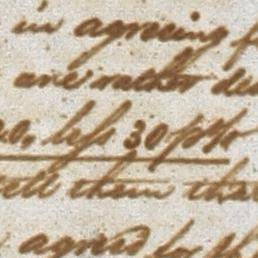 in agreeing f
are rather de
20, less 30 p%
tell them that
agreed to th